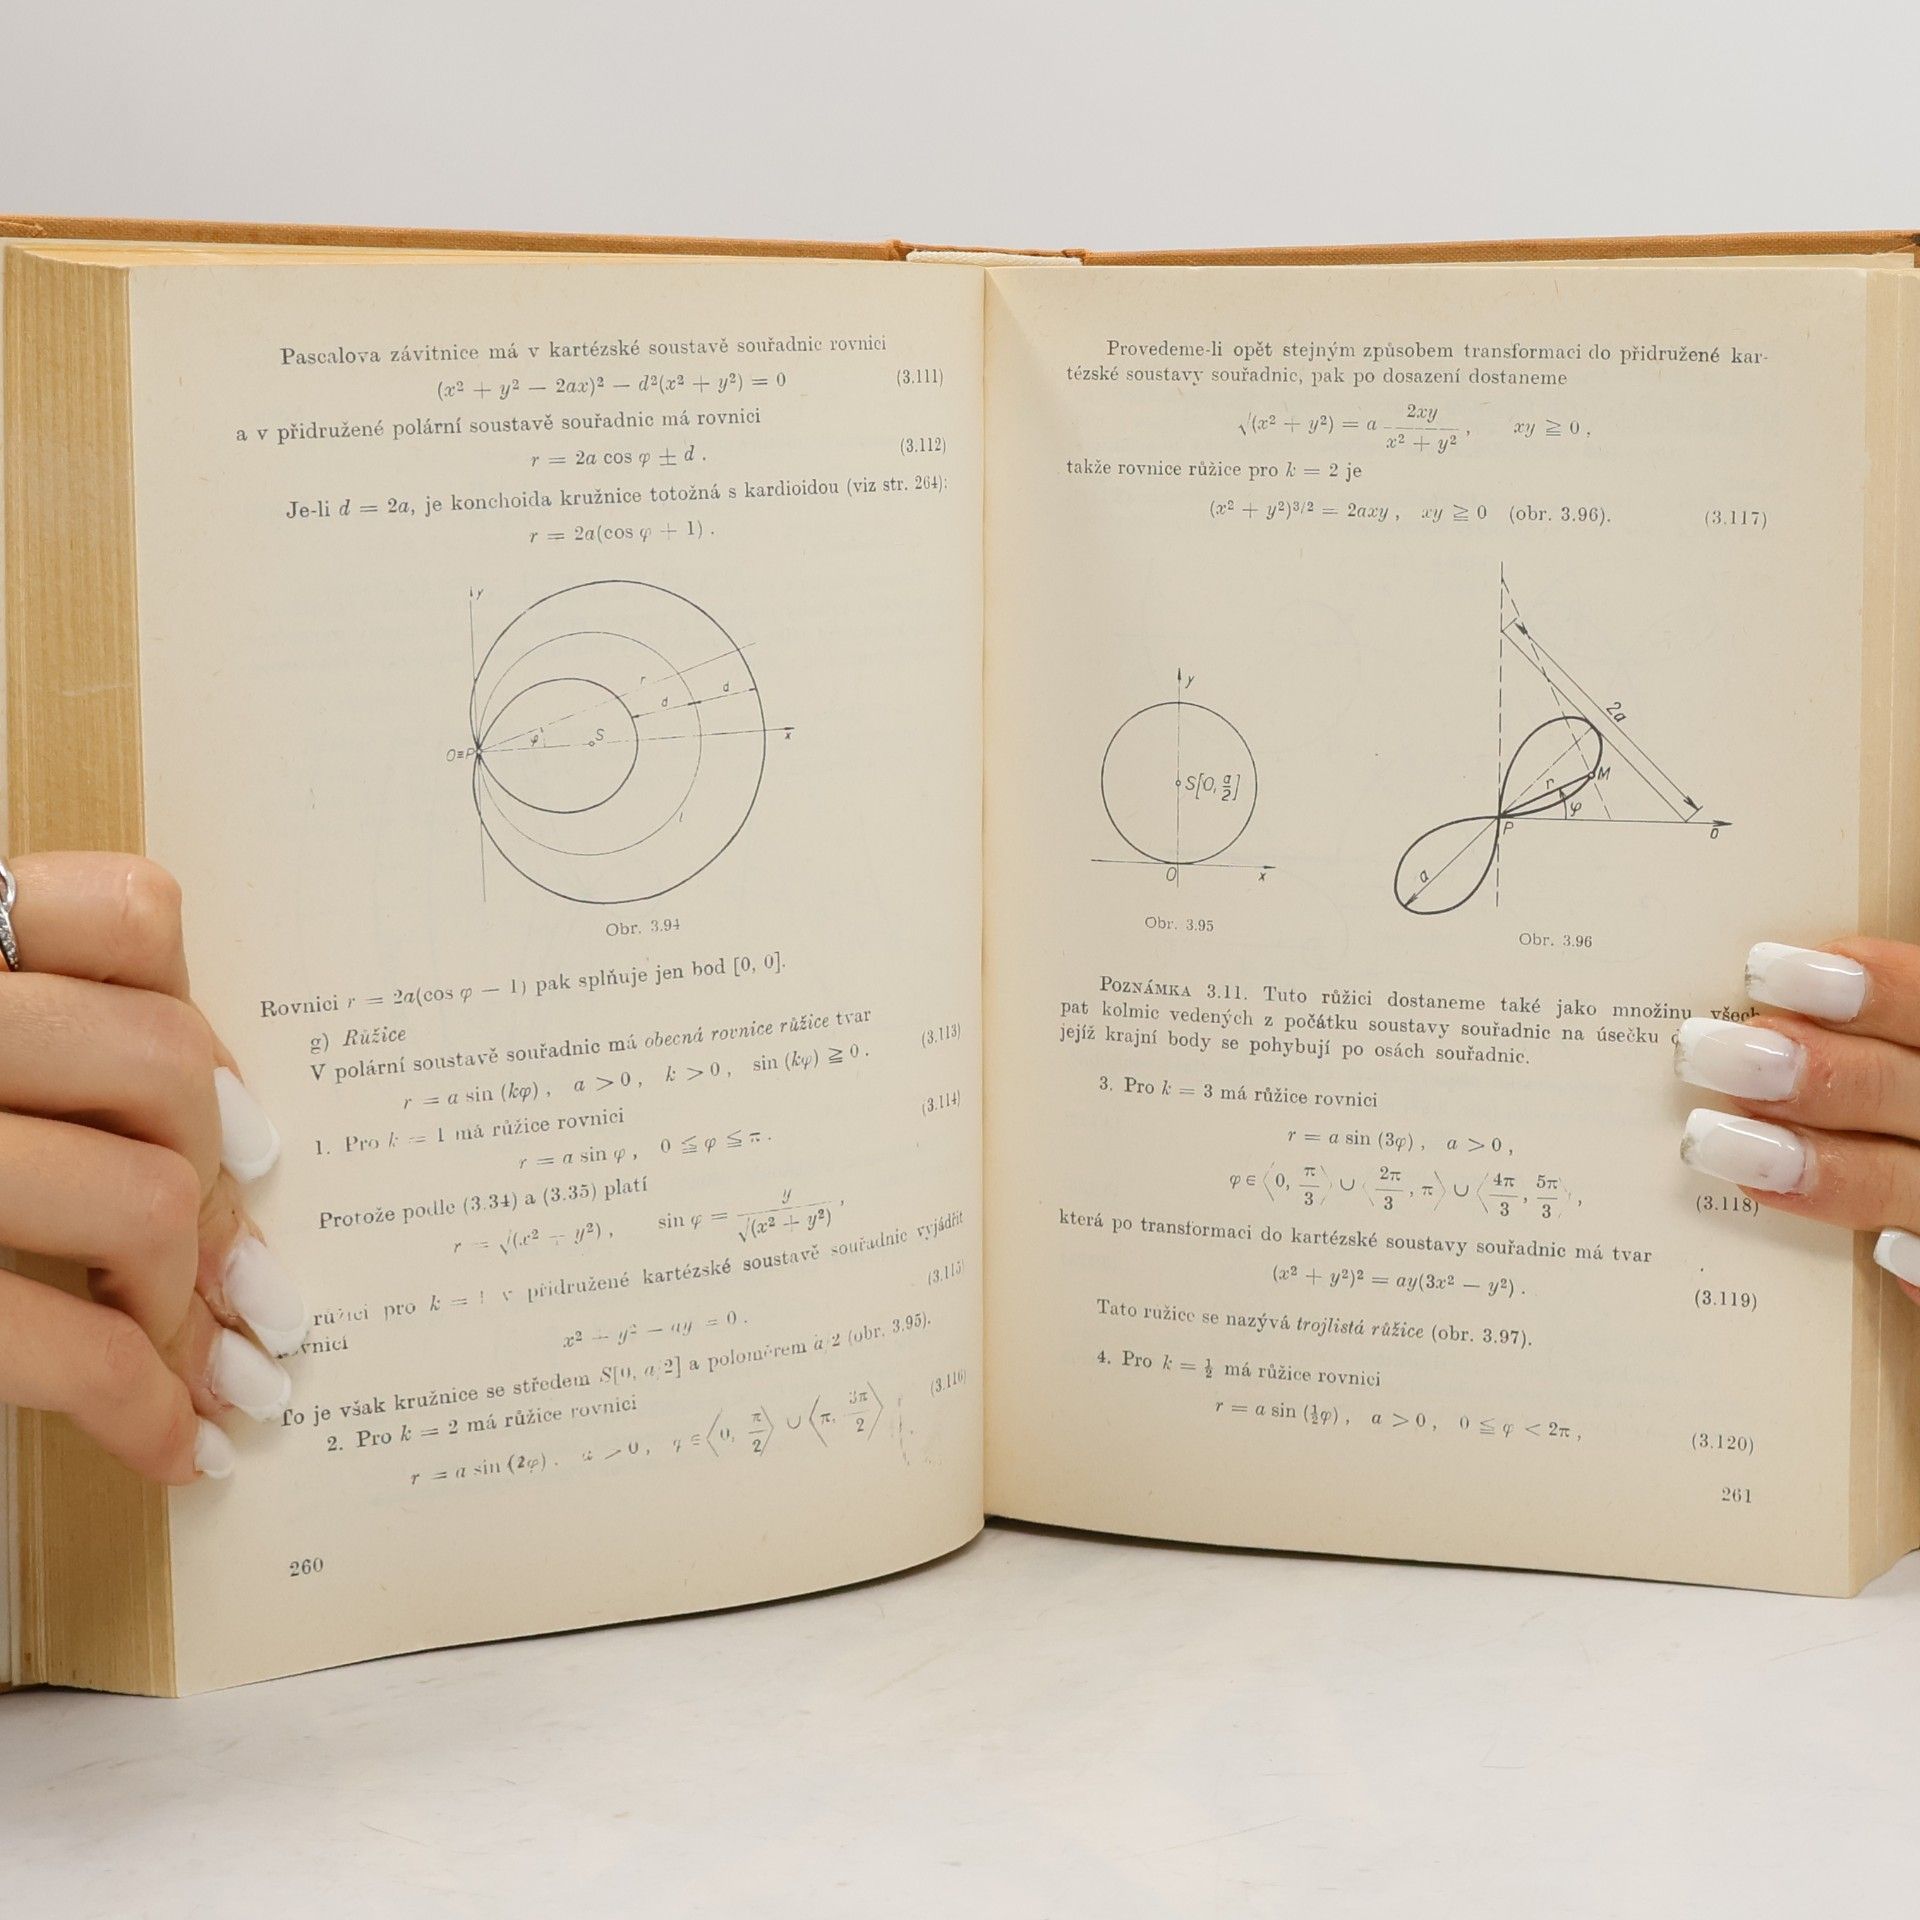 Pascalova závitnice má v kartézské soustavě souřadnic rovnici
(x² + y² − 2ax)² − d²(x² + y²) = 0 (3.111)
a v přidružené polární soustavě souřadnic má rovnici
r = 2a cos φ ± d . (3.112)
Je-li d = 2a, je konchoida kružnice totožná s kardioidou (viz str. 264):
r = 2a(cos φ + 1) .
y
r
d
d
φ
S
x
O≡P
l
Obr. 3.94
Rovnici r = 2a(cos φ − 1) pak splňuje jen bod [0, 0].
g) Růžice
V polární soustavě souřadnic má obecná rovnice růžice tvar
r = a sin (kφ) , a > 0 , k > 0 , sin (kφ) ≧ 0 . (3.113)
1. Pro k = 1 má růžice rovnici
r = a sin φ , 0 ≦ φ ≦ π . (3.114)
Protože podle (3.34) a (3.35) platí
r = √(x² + y²) , sin φ = y / √(x² + y²) ,
růžici pro k = 1 v přidružené kartézské soustavě souřadnic vyjádřit
x² + y² − ay = 0 . (3.115)
To je však kružnice se středem S[0, a/2] a poloměrem a/2 (obr. 3.95).
2. Pro k = 2 má růžice rovnici
r = a sin (2φ) . a > 0 , φ ∈ ⟨0, π/2⟩ ∪ ⟨π, 3π/2⟩ (3.116)
260
Provedeme-li opět stejným způsobem transformaci do přidružené kar-
tézské soustavy souřadnic, pak po dosazení dostaneme
√(x² + y²) = a 2xy / x² + y² , xy ≧ 0 ,
takže rovnice růžice pro k = 2 je
(x² + y²)³/² = 2axy , xy ≧ 0 (obr. 3.96). (3.117)
y
S[0, a/2]
O
x
Obr. 3.95
2a
M
r
φ
P
o
a
Obr. 3.96
POZNÁMKA 3.11. Tuto růžici dostaneme také jako množinu všech
pat kolmic vedených z počátku soustavy souřadnic na úsečku
jejíž krajní body se pohybují po osách souřadnic.
3. Pro k = 3 má růžice rovnici
r = a sin (3φ) , a > 0 ,
φ ∈ ⟨0, π/3⟩ ∪ ⟨2π/3, π⟩ ∪ ⟨4π/3, 5π/3⟩ , (3.118)
která po transformaci do kartézské soustavy souřadnic má tvar
(x² + y²)² = ay(3x² − y²) . (3.119)
Tato ružice se nazývá trojlistá růžice (obr. 3.97).
4. Pro k = ½ má růžice rovnici
r = a sin (½φ) , a > 0 , 0 ≦ φ < 2π , (3.120)
261